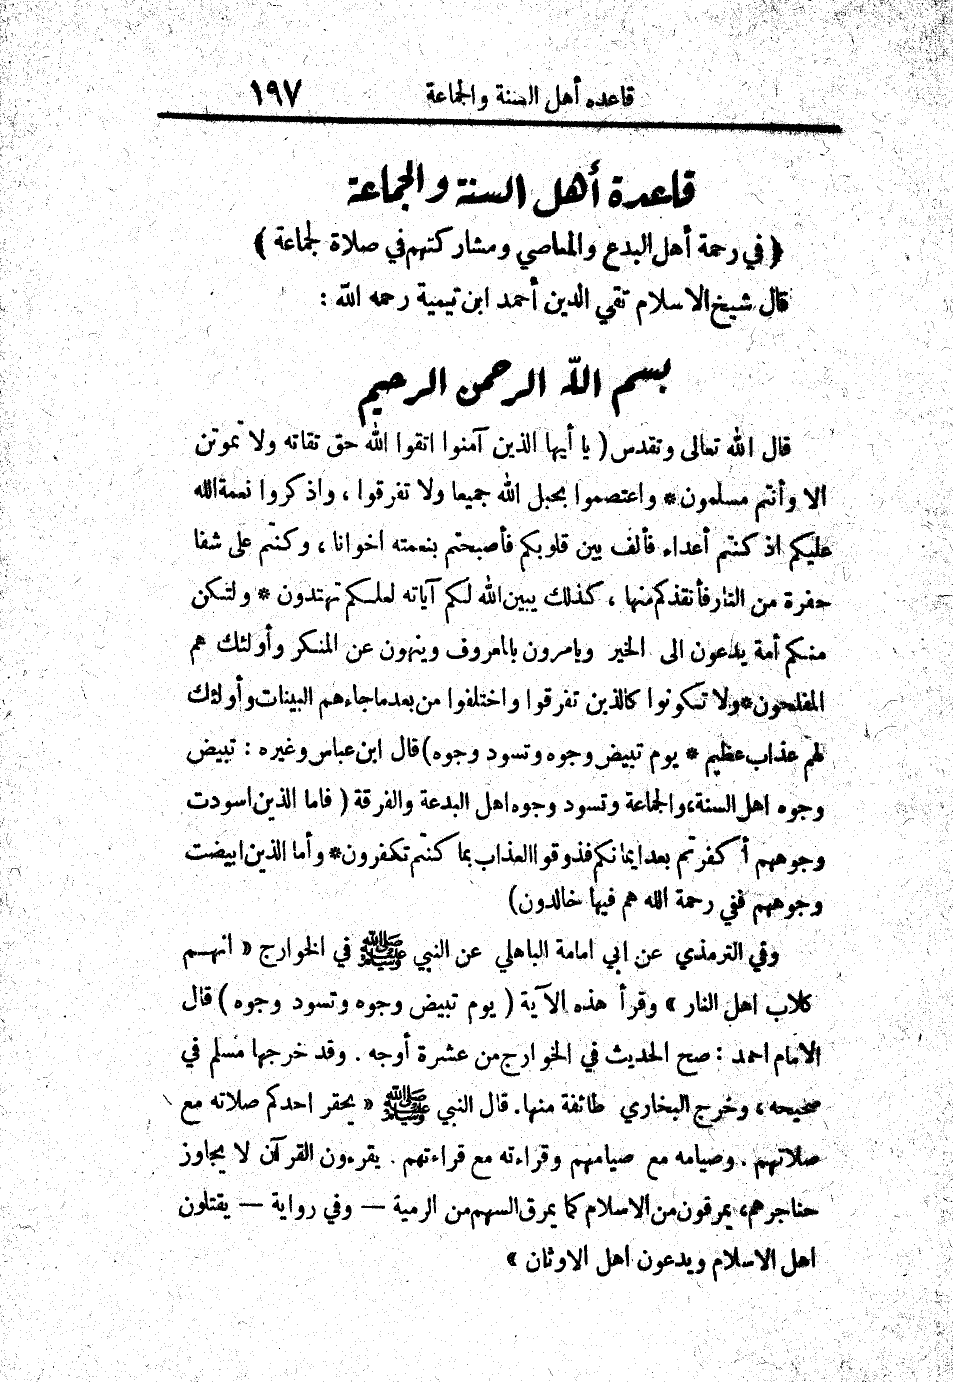 قاعده أهل السنة والجماعة ١٩٧
قاعدة أهل السنة والجماعة
﴿ في رحمة أهل البدع والمعاصي ومشاركتهم في صلاة لجماعة ﴾
قال شيخ الاسلام تقي الدين أحمد ابن تيمية رحمه الله :
بسم الله الرحمن الرحيم
قال الله تعالى وتقدس ( يا أيها الذين آمنوا اتقوا الله حق تقاته ولا تموتن
الا وأنتم مسلمون * واعتصموا بحبل الله جميعا ولا تفرقوا ، واذكروا نعمة الله
عليكم اذ كنتم أعداء فألف بين قلوبكم فأصبحتم بنعمته اخوانا ، وكنتم على شفا
حفرة من النار فأنقذكم منها ، كذلك يبين الله لكم آياته لعلكم تهتدون * ولتكن
منكم أمة يدعون الى الخير ويامرون بالمعروف وينهون عن المنكر وأولئك هم
المفلحون * ولا تكونوا كالذين تفرقوا واختلفوا من بعد ما جاءهم البينات وأولئك
لهم عذاب عظيم * يوم تبيض وجوه وتسود وجوه ) قال ابن عباس وغيره : تبيض
وجوه اهل السنة، والجماعة وتسود وجوه اهل البدعة والفرقة ( فاما الذين اسودت
وجوههم أكفرتم بعد ايمانكم فذوقوا العذاب بما كنتم تكفرون * وأما الذين ابيضت
وجوههم ففي رحمة الله هم فيها خالدون )
وفي الترمذي عن ابي امامة الباهلي عن النبي ﷺ في الخوارج « انهم
كلاب اهل النار » وقرأ هذه الآية ( يوم تبيض وجوه وتسود وجوه ) قال
الامام احمد : صح الحديث في الخوارج من عشرة أوجه . وقد خرجها مسلم في
صحيحه ، وخرج البخاري طائفة منها . قال النبي ﷺ « يحقر احدكم صلاته مع
صلاتهم . وصيامه مع صيامهم وقراءته مع قراءتهم . يقرءون القرآن لا يجاوز
حناجرهم، يمرقون من الاسلام كما يمرق السهم من الرمية — وفي رواية — يقتلون
اهل الاسلام ويدعون اهل الاوثان »